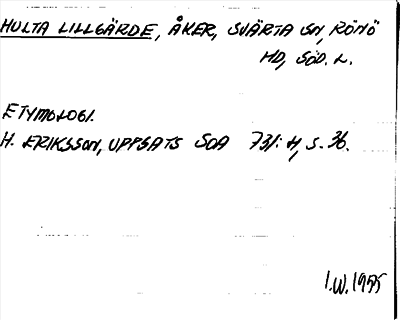 HULTA LILLGÄRDE, ÅKER, SVÄRTA SN, RÖNÖ
HD, SÖD. L.
ETYMOLOGI.
H. ERIKSSON, UPPSATS SOA 731:4, S. 36.
I.W. 1955